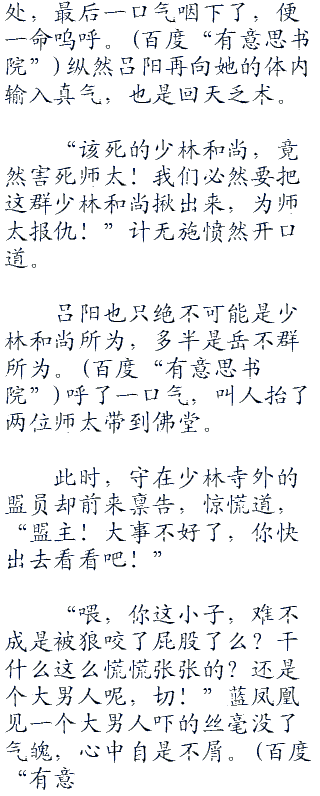 处，最后一口气咽下了，便
一命呜呼。(百度“有意思书
院”)纵然吕阳再向她的体内
输入真气，也是回天乏术。
“该死的少林和尚，竟
然害死师太！我们必然要把
这群少林和尚揪出来，为师
太报仇！”计无施愤然开口
道。
吕阳也只绝不可能是少
林和尚所为，多半是岳不群
所为。(百度“有意思书
院”)呼了一口气，叫人抬了
两位师太带到佛堂。
此时，守在少林寺外的
盟员却前来禀告，惊慌道，
“盟主！大事不好了，你快
出去看看吧！”
“喂，你这小子，难不
成是被狼咬了屁股了么？干
什么这么慌慌张张的？还是
个大男人呢，切！”蓝凤凰
见一个大男人吓的丝毫没了
气魄，心中自是不屑。(百度
“有意